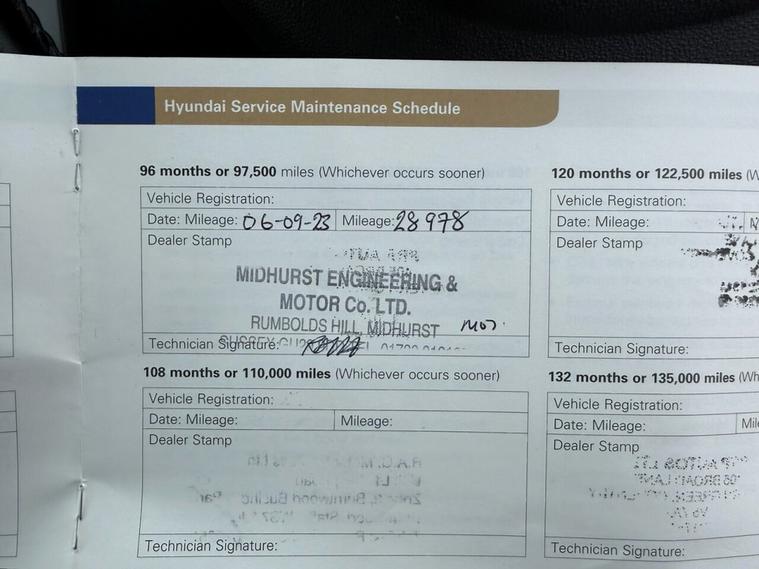 Hyundai Service Maintenance Schedule
96 months or 97,500 miles (Whichever occurs sooner)
Vehicle Registration:
Date: Mileage: 06-09-23 Mileage: 28978
Dealer Stamp
MIDHURST ENGINEERING &
MOTOR Co. LTD.
RUMBOLDS HILL, MIDHURST
MOT.
Technician Signature:
108 months or 110,000 miles (Whichever occurs sooner)
Vehicle Registration:
Date: Mileage: Mileage:
Dealer Stamp
Technician Signature:
120 months or 122,500 miles (W
Vehicle Registration:
Date: Mileage:
Dealer Stamp
Technician Signature:
132 months or 135,000 miles (Wh
Vehicle Registration:
Date: Mileage: Mil
Dealer Stamp
Technician Signature: